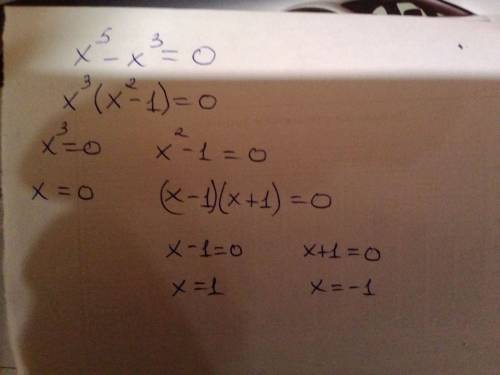 x⁵ - x³ = 0
x³(x² - 1) = 0
x³ = 0 x² - 1 = 0
x = 0 (x - 1)(x + 1) = 0
x - 1 = 0 x + 1 = 0
x = 1 x = -1